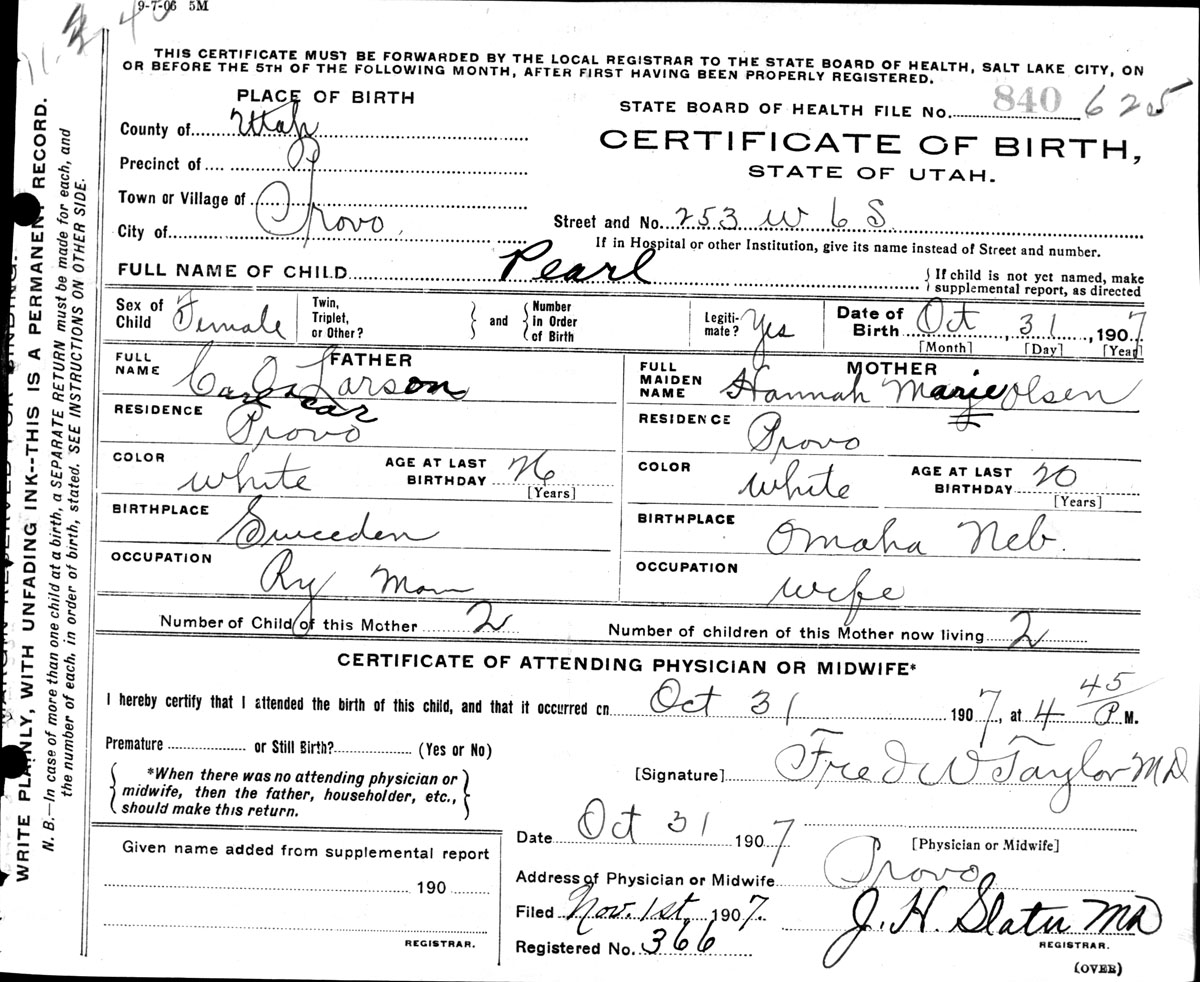 9-7-06 5M
THIS CERTIFICATE MUST BE FORWARDED BY THE LOCAL REGISTRAR TO THE STATE BOARD OF HEALTH, SALT LAKE CITY, ON
OR BEFORE THE 5TH OF THE FOLLOWING MONTH, AFTER FIRST HAVING BEEN PROPERLY REGISTERED.
PLACE OF BIRTH
STATE BOARD OF HEALTH FILE No. 840 625
County of Utah
CERTIFICATE OF BIRTH,
Precinct of
STATE OF UTAH.
Town or Village of
City of Provo
Street and No. 253 W 6 S.
If in Hospital or other Institution, give its name instead of Street and number.
FULL NAME OF CHILD Pearl
If child is not yet named, make
supplemental report, as directed
Sex of Child Female
Twin, Triplet, or Other?
and
Number in Order of Birth
Legiti-mate? Yes
Date of Birth Oct 31, 1907
[Month] [Day] [Year]
FATHER
FULL NAME Carl Oscar Larson
RESIDENCE Provo
COLOR white
AGE AT LAST BIRTHDAY 26
[Years]
BIRTHPLACE Sweeden
OCCUPATION Ry Man
MOTHER
FULL MAIDEN NAME Hannah Marie Olsen
RESIDENCE Provo
COLOR white
AGE AT LAST BIRTHDAY 20
[Years]
BIRTHPLACE Omaha Neb.
OCCUPATION wife
Number of Child of this Mother 2
Number of children of this Mother now living 2
CERTIFICATE OF ATTENDING PHYSICIAN OR MIDWIFE*
I hereby certify that I attended the birth of this child, and that it occurred on Oct 31 1907, at 4 45 P. M.
Premature or Still Birth? (Yes or No)
[Signature] Fred W Taylor MD
*When there was no attending physician or
midwife, then the father, householder, etc.,
should make this return.
Date Oct 31 1907
[Physician or Midwife]
Given name added from supplemental report
190
REGISTRAR.
Address of Physician or Midwife Provo
Filed Nov. 1st, 1907.
J. H. Slater MD
REGISTRAR.
Registered No. 366
(OVER)
MARGIN RESERVED FOR BINDING.
WRITE PLAINLY, WITH UNFADING INK--THIS IS A PERMANENT RECORD.
N. B.—In case of more than one child at a birth, a SEPARATE RETURN must be made for each, and
the number of each, in order of birth, stated. SEE INSTRUCTIONS ON OTHER SIDE.